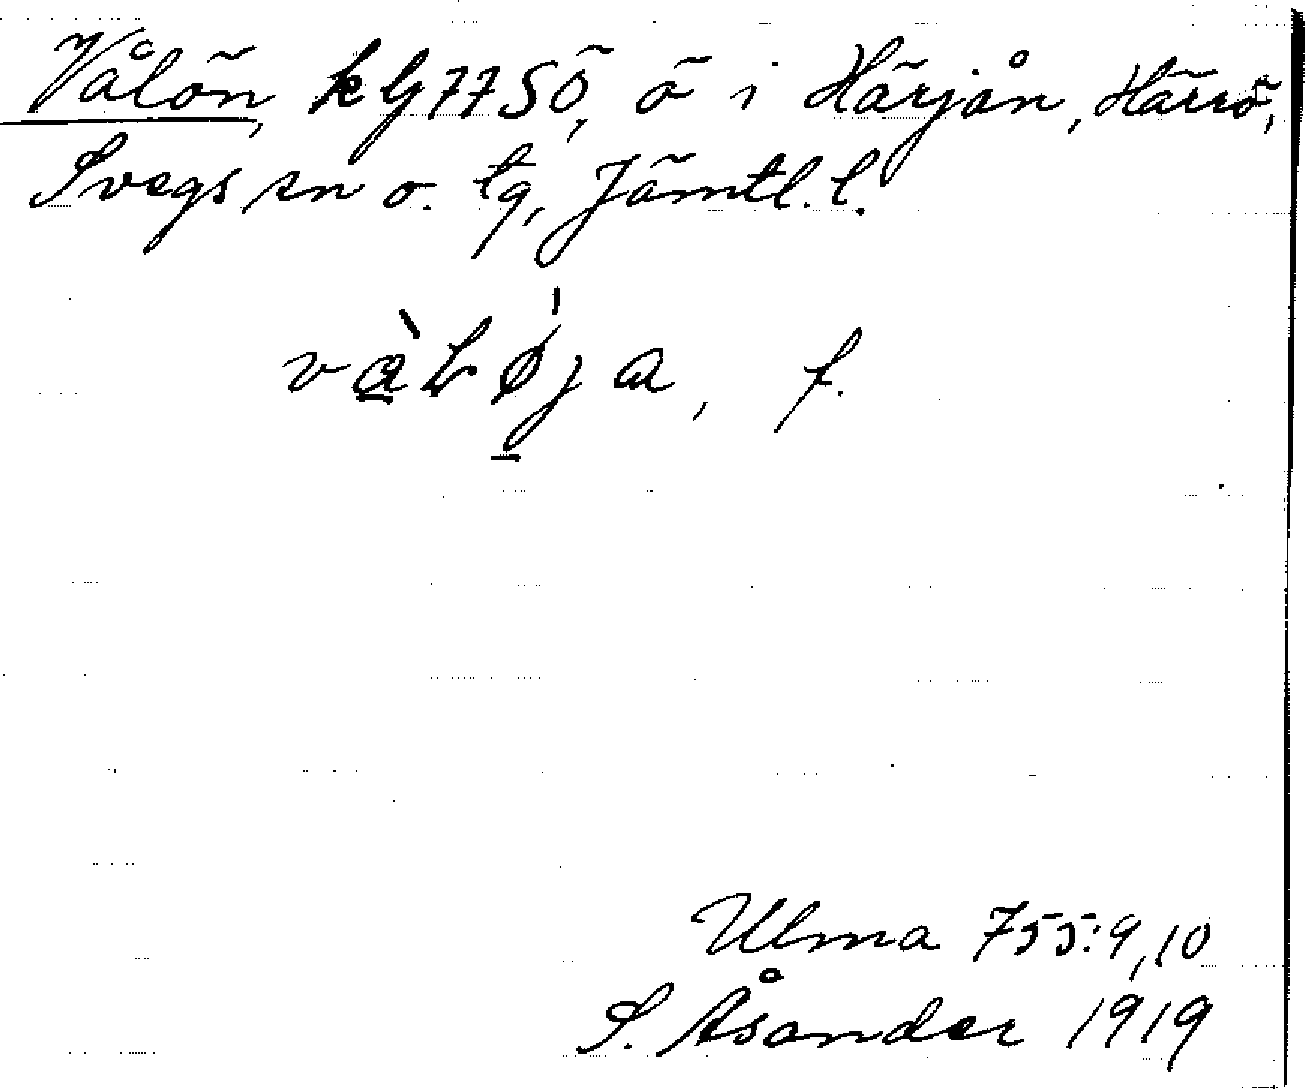 Vålön, kg 77 SÖ, ö i Härjån, Härrö,
Svegs sn o. tg, Jämtl. l.
våLøja, f.
Ulma 755:9,10
S. Åsander 1919